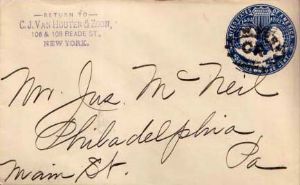 RETURN TO
C.J. VAN HOUTEN & ZOON,
106 & 108 READE ST.,
NEW YORK.
Mr. Jas. McNeil
Philadelphia,
Main St. Pa